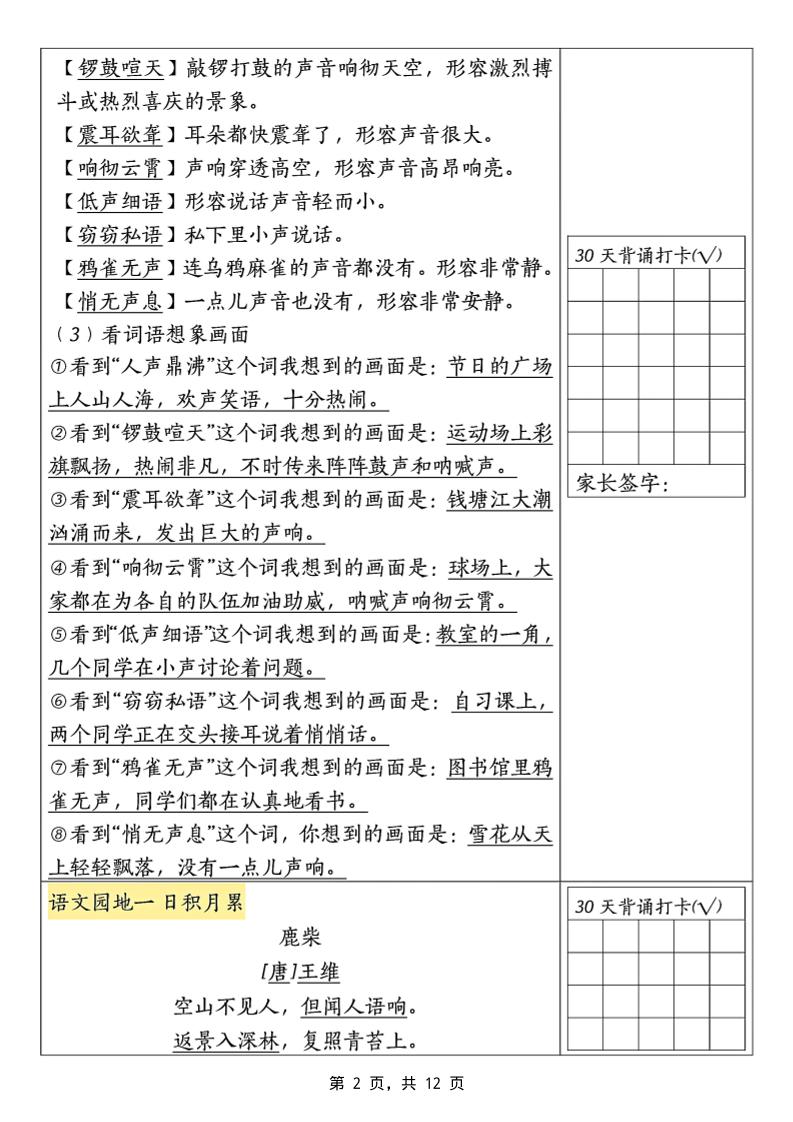 【锣鼓喧天】敲锣打鼓的声音响彻天空，形容激烈搏
斗或热烈喜庆的景象。
【震耳欲聋】耳朵都快震聋了，形容声音很大。
【响彻云霄】声响穿透高空，形容声音高昂响亮。
【低声细语】形容说话声音轻而小。
【窃窃私语】私下里小声说话。
【鸦雀无声】连乌鸦麻雀的声音都没有。形容非常静。
【悄无声息】一点儿声音也没有，形容非常安静。
（3）看词语想象画面
①看到“人声鼎沸”这个词我想到的画面是：节日的广场
上人山人海，欢声笑语，十分热闹。
②看到“锣鼓喧天”这个词我想到的画面是：运动场上彩
旗飘扬，热闹非凡，不时传来阵阵鼓声和呐喊声。
③看到“震耳欲聋”这个词我想到的画面是：钱塘江大潮
汹涌而来，发出巨大的声响。
④看到“响彻云霄”这个词我想到的画面是：球场上，大
家都在为各自的队伍加油助威，呐喊声响彻云霄。
⑤看到“低声细语”这个词我想到的画面是：教室的一角，
几个同学在小声讨论着问题。
⑥看到“窃窃私语”这个词我想到的画面是：自习课上，
两个同学正在交头接耳说着悄悄话。
⑦看到“鸦雀无声”这个词我想到的画面是：图书馆里鸦
雀无声，同学们都在认真地看书。
⑧看到“悄无声息”这个词，你想到的画面是：雪花从天
上轻轻飘落，没有一点儿声响。
30 天背诵打卡(√)
家长签字：
语文园地一 日积月累
鹿柴
[唐]王维
空山不见人，但闻人语响。
返景入深林，复照青苔上。
30 天背诵打卡(√)
第 2 页，共 12 页